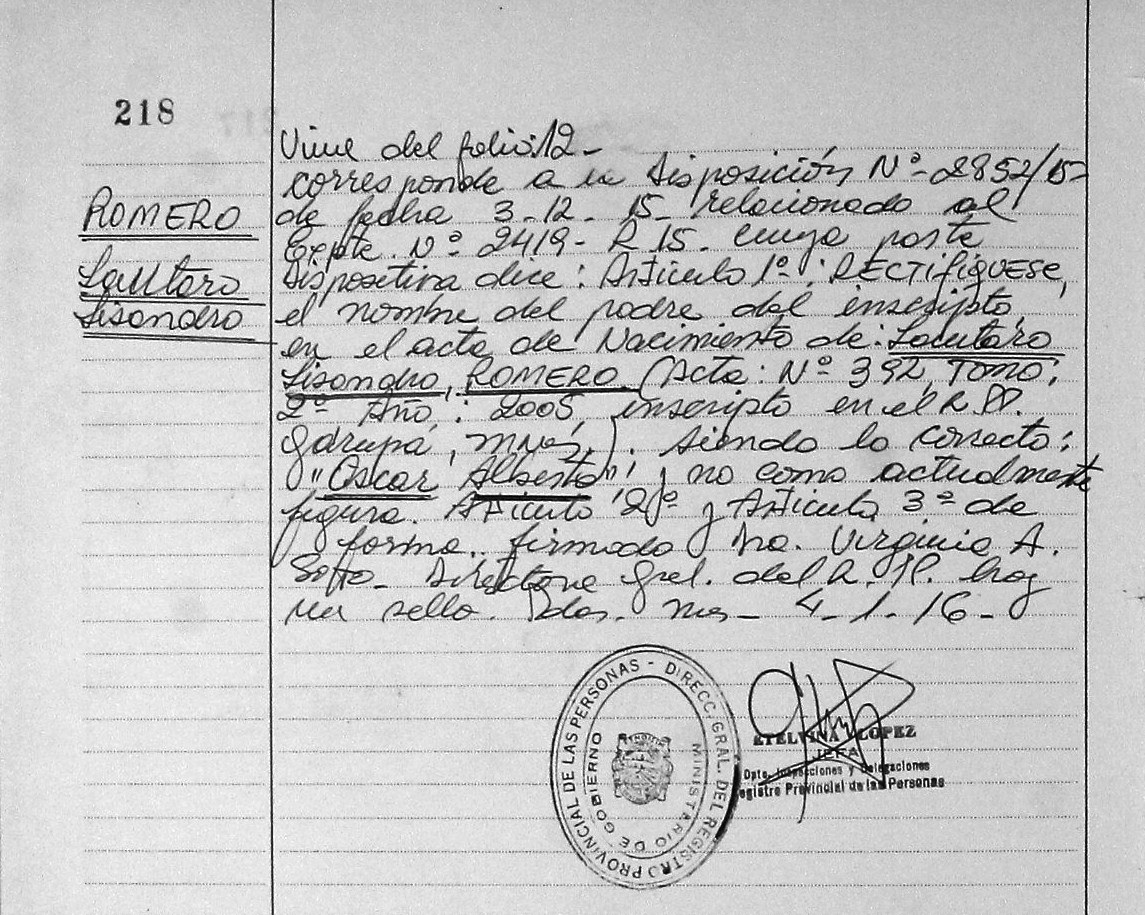 218
ROMERO
Lautaro
Lisandro
Viene del folio: 12-
corresponde a la Disposición Nº-2852/15-
de fecha 3-12-15- relacionado al
Expte. Nº- 2419- R 15. cuya parte
dispositiva dice: Artículo 1º: RECTIFIQUESE,
el nombre del padre del inscripto,
en el acta de Nacimiento de: Lautaro
Lisandro, ROMERO (Acta: Nº 392, Tomo:
2º Año: 2005, inscripto en el R PP.
garupá, Mnes,). siendo lo correcto:
"Oscar Alberto", y no como actualmente
figura. Artículo 2º y Artículo 3º de
forma. firmado Dra. Virginia A.
Directora Gral. del R. P. hay
un sello. Pdas. Mns- 4-1-16-
DIRECC. GRAL. DEL REGISTRO PROVINCIAL DE LAS PERSONAS -
MINISTERIO DE GOBIERNO
ETELVINA LOPEZ
JEFA
Dpto. Inspecciones y Delegaciones
Registro Provincial de las Personas